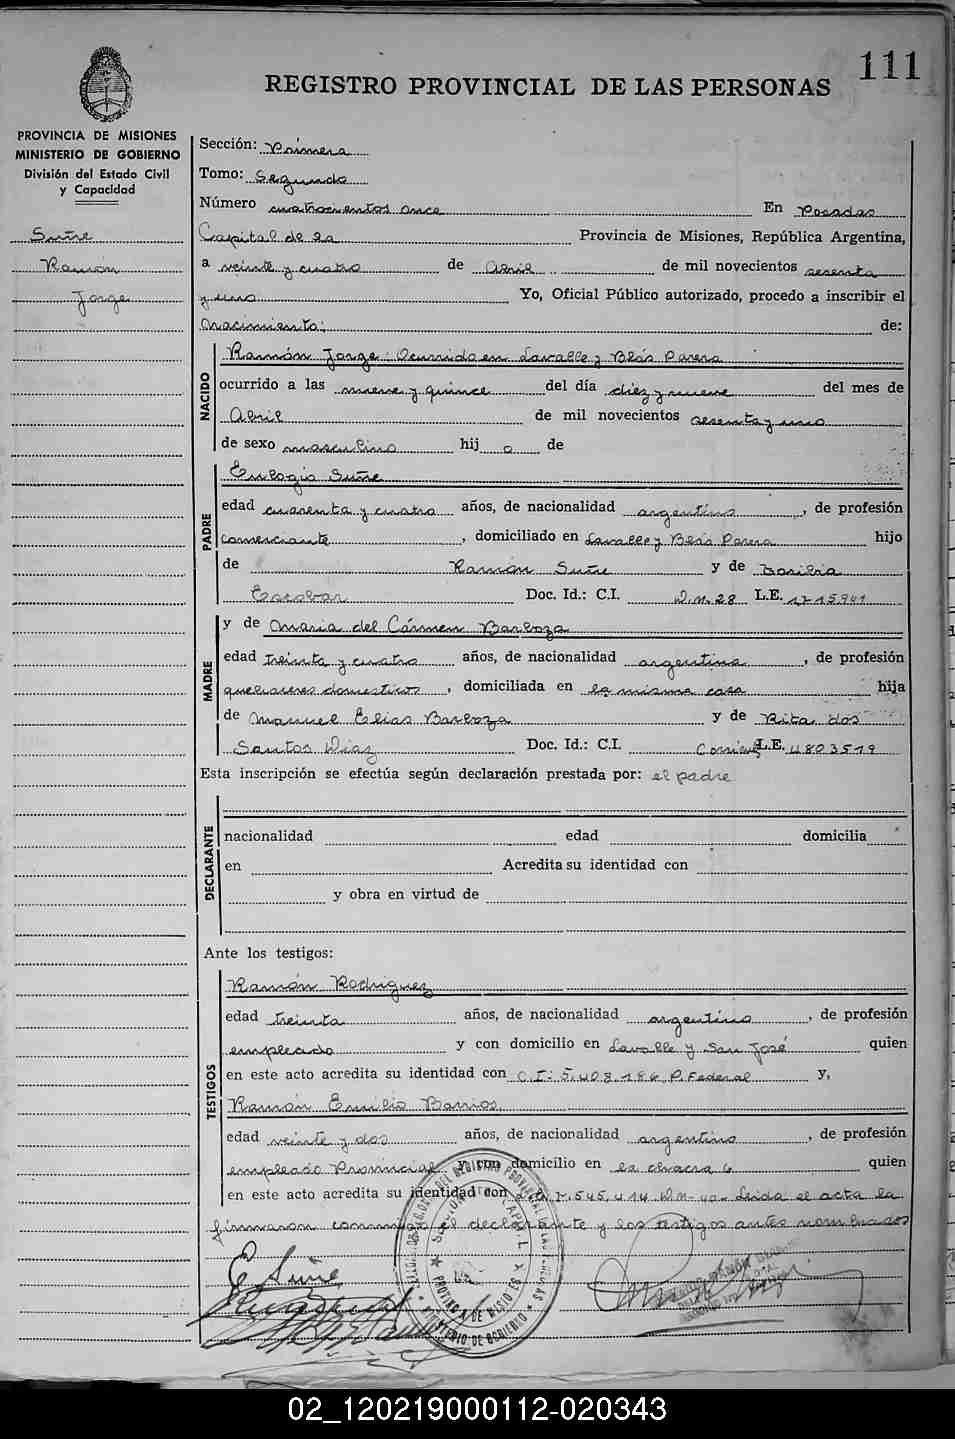 111
REGISTRO PROVINCIAL DE LAS PERSONAS
PROVINCIA DE MISIONES
MINISTERIO DE GOBIERNO
División del Estado Civil
y Capacidad
Suñe
Ramón
Jorge
Sección: Primera
Tomo: Segundo
Número cuatrocientos once En Posadas
Capital de la Provincia de Misiones, República Argentina,
a veinte y cuatro de Abril de mil novecientos sesenta
y uno Yo, Oficial Público autorizado, procedo a inscribir el
Nacimiento: de:
NACIDO
Ramón Jorge: Ocurrido en Lavalle y Blás Parera
ocurrido a las nueve y quince del día diez y nueve del mes de
Abril de mil novecientos sesenta y uno
de sexo masculino hij o de
PADRE
Eulogio Suñe
edad cuarenta y cuatro años, de nacionalidad argentino, de profesión
comerciante, domiciliado en Lavalle y Blás Parera hijo
de Ramón Suñe y de Basilia
Escobar Doc. Id.: C.I. D.M. 28 L.E. 1715941
MADRE
y de Maria del Cármen Barboza
edad treinta y cuatro años, de nacionalidad argentina, de profesión
quehaceres domesticos, domiciliada en la misma casa hija
de Manuel Elias Barboza y de Rita dos
Santos Diaz Doc. Id.: C.I. L.E. 4803519
Esta inscripción se efectúa según declaración prestada por: el padre
DECLARANTE
nacionalidad edad domicilia
en Acredita su identidad con
y obra en virtud de
Ante los testigos:
TESTIGOS
Ramón Rodriguez
edad treinta años, de nacionalidad argentino, de profesión
empleado y con domicilio en Lavalle y San José quien
en este acto acredita su identidad con C.I: 5.408.186 P. Federal y,
Ramón Emilio Barrios
edad veinte y dos años, de nacionalidad argentino, de profesión
empleado Provincial y con domicilio en la chacra 6 quien
en este acto acredita su identidad con 545.414 Leida el acta la
firmaron conmigo el declarante y los testigos antes nombrados
E Suñe
PROVINCIA DE MISIONES
MINISTERIO DE GOBIERNO
02_120219000112-020343